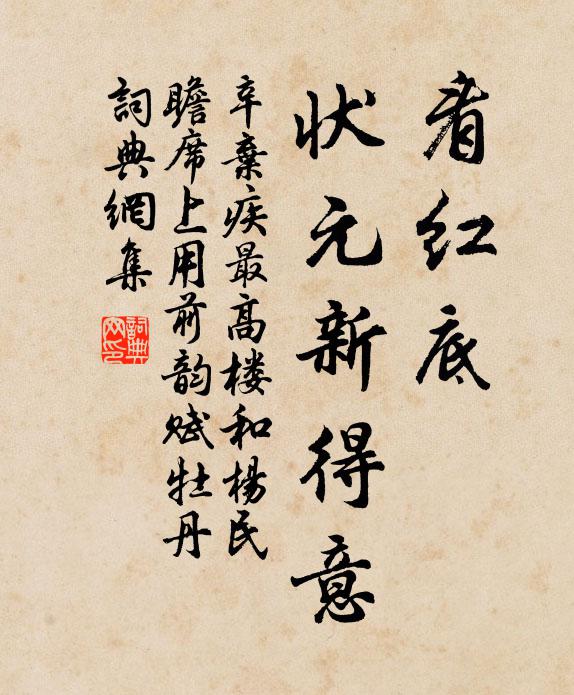 看红底
状元新得意
辛棄疾最高楼和楊民
瞻席上用前韵赋牡丹
詞典網集
詞典
网印